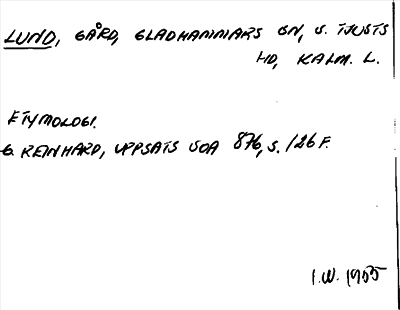 LUND, GÅRD, GLADHAMMARS SN, S. TJUSTS
HD, KALM. L.
ETYMOLOGI.
G. REINHARD, UPPSATS SOA 876, S. 126 F.
I.W. 1955